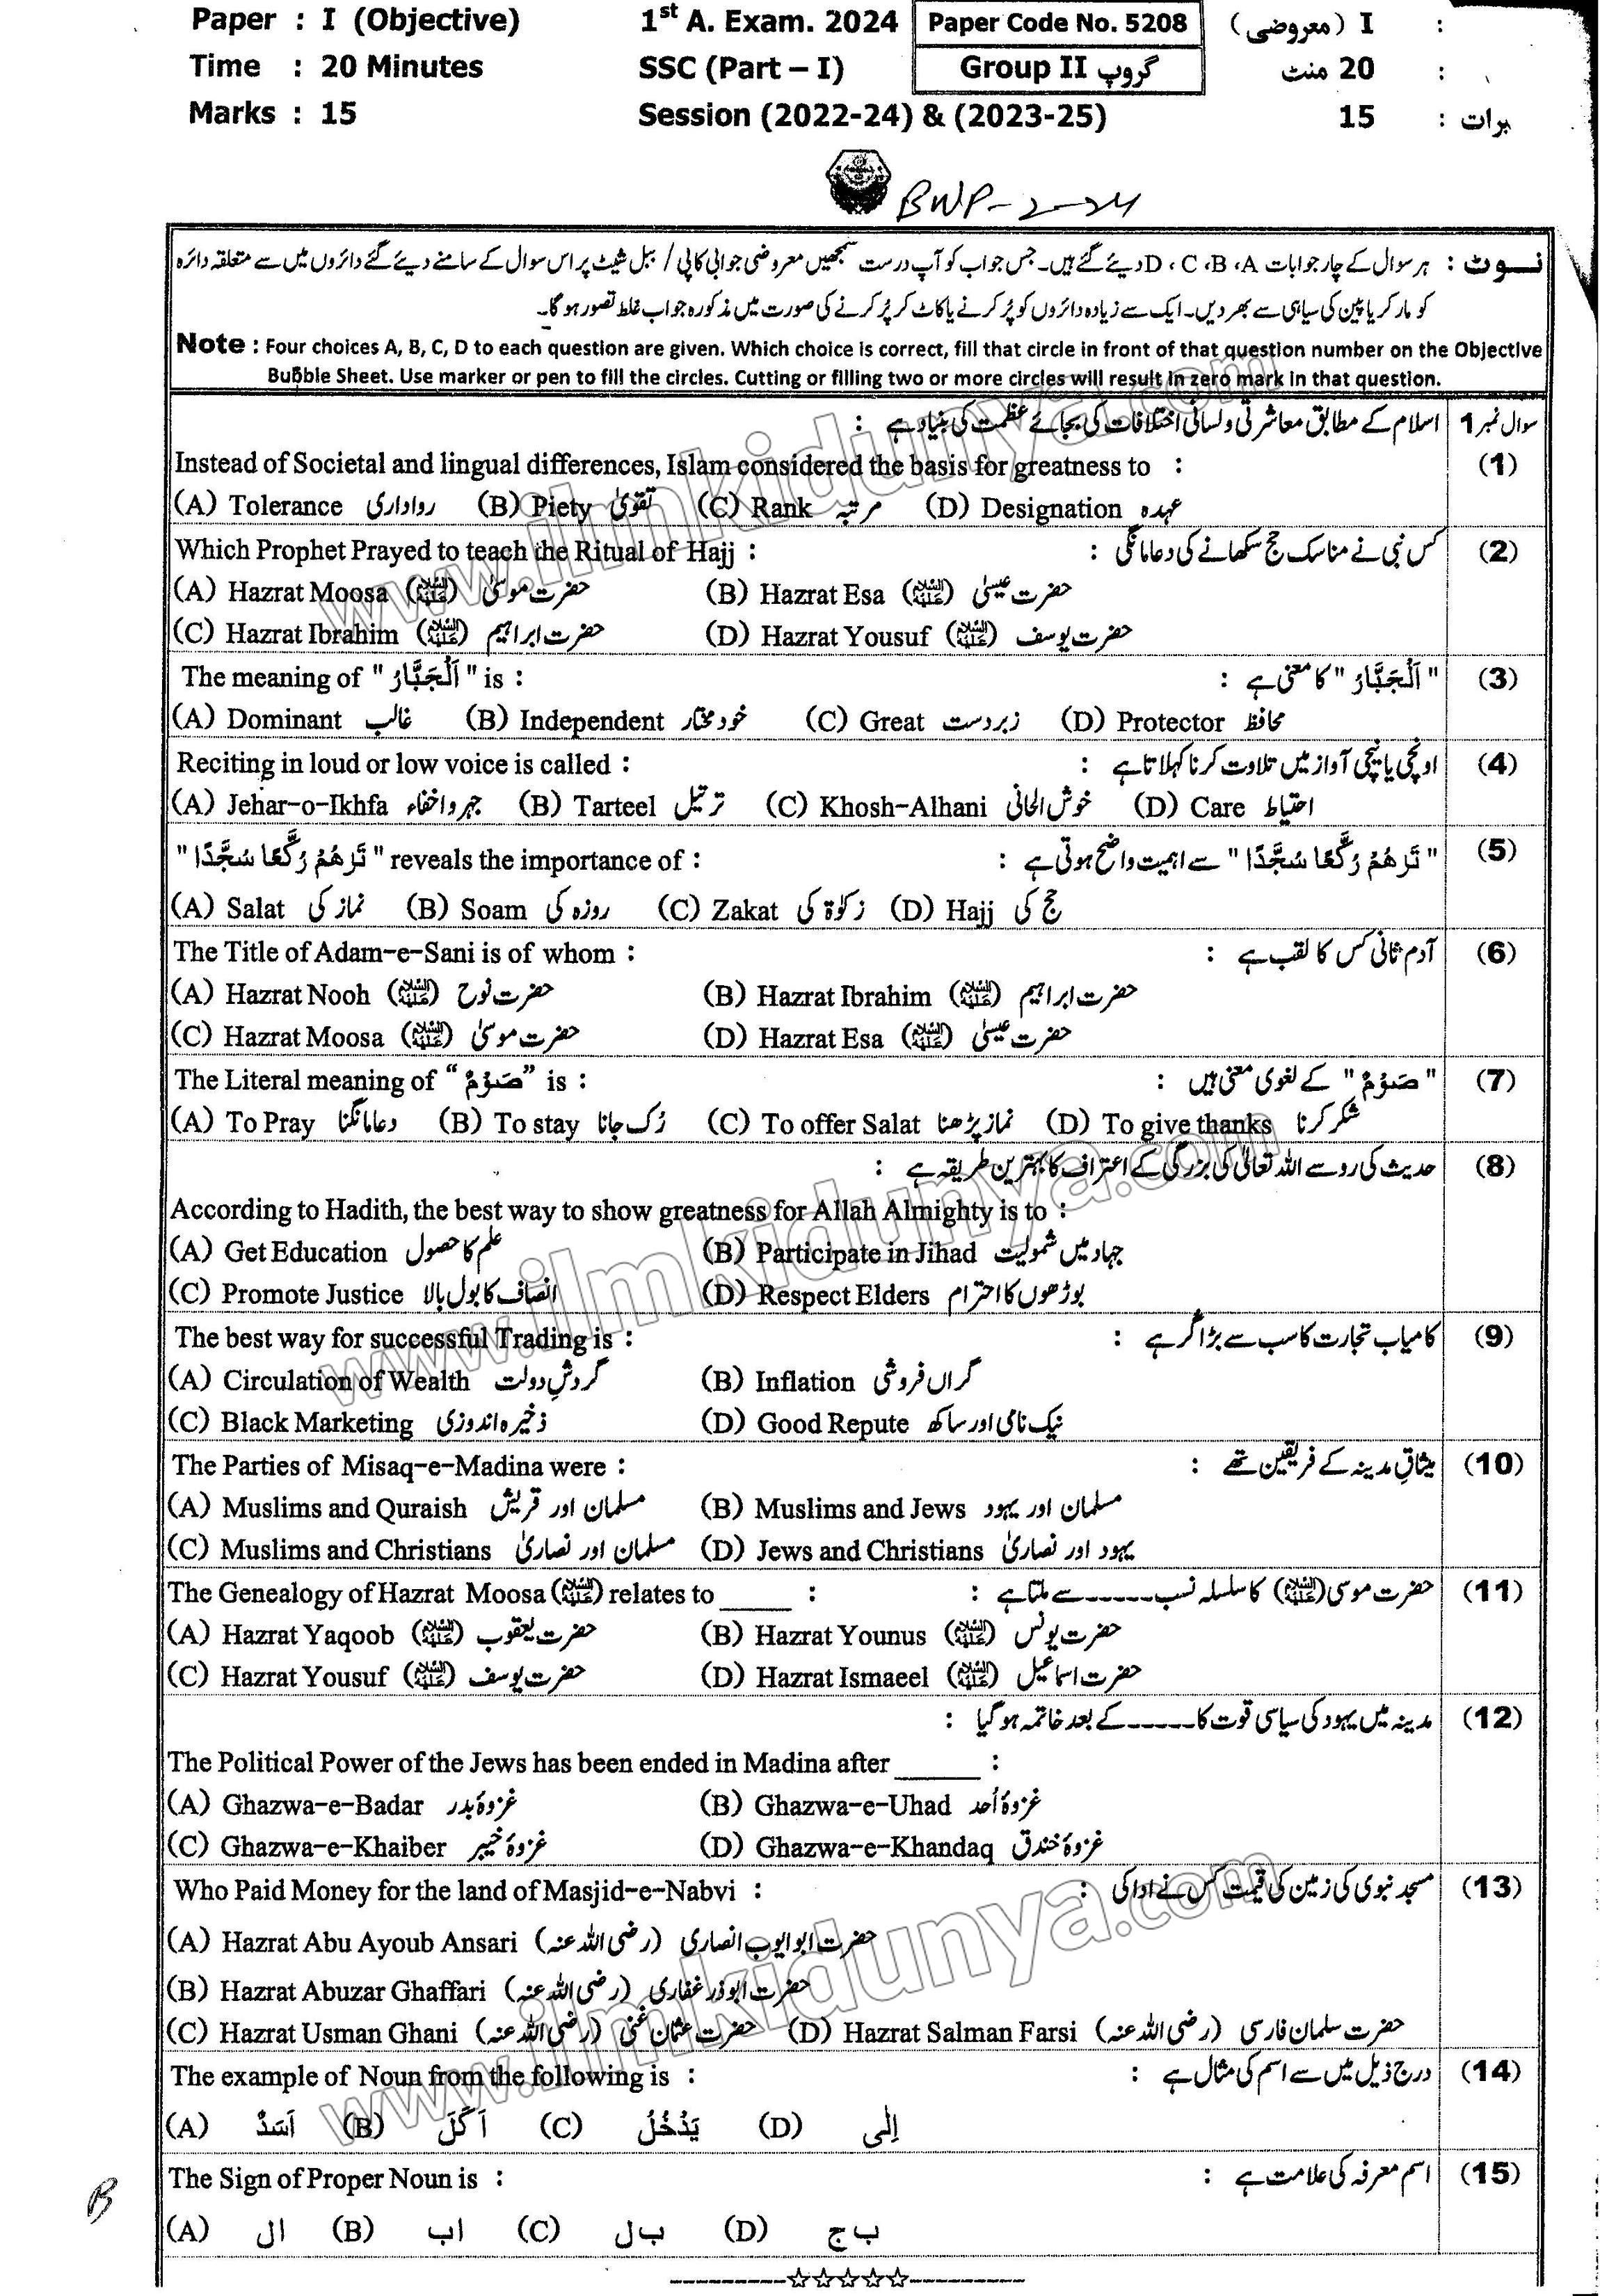 Paper : I (Objective) 1st A. Exam. 2024 Paper Code No. 5208 I (معروضی) :
Time : 20 Minutes SSC (Part – I) Group II گروپ 20 منٹ :
Marks : 15 Session (2022-24) & (2023-25) 15 : برات
BWP-2-24
نوٹ : ہر سوال کے چار جوابات A، B، C، D دیئے گئے ہیں۔ جس جواب کو آپ درست سمجھیں معروضی جوابی کاپی / ببل شیٹ پر اس سوال کے سامنے دیئے گئے دائروں میں سے متعلقہ دائرہ
کو مارکر یا پین کی سیاہی سے بھر دیں۔ ایک سے زیادہ دائروں کو پُر کرنے یا کاٹ کر پُر کرنے کی صورت میں مذکورہ جواب غلط تصور ہوگا۔
Note : Four choices A, B, C, D to each question are given. Which choice is correct, fill that circle in front of that question number on the Objective
Bubble Sheet. Use marker or pen to fill the circles. Cutting or filling two or more circles will result in zero mark in that question.
سوال نمبر 1 اسلام کے مطابق معاشرتی ولسانی اختلافات کی بجائے عظمت کی بنیاد ہے :
Instead of Societal and lingual differences, Islam considered the basis for greatness to : (1)
(A) Tolerance رواداری (B) Piety تقویٰ (C) Rank مرتبہ (D) Designation عہدہ
Which Prophet Prayed to teach the Ritual of Hajj : کس نبی نے مناسک حج سکھانے کی دعا مانگی : (2)
(A) Hazrat Moosa (علیہ السلام) حضرت موسیٰ (B) Hazrat Esa (علیہ السلام) حضرت عیسیٰ
(C) Hazrat Ibrahim (علیہ السلام) حضرت ابراہیم (D) Hazrat Yousuf (علیہ السلام) حضرت یوسف
The meaning of " اَلْجَبَّارُ " is : " اَلْجَبَّارُ " کا معنی ہے : (3)
(A) Dominant غالب (B) Independent خود مختار (C) Great زبردست (D) Protector محافظ
Reciting in loud or low voice is called : اونچی یا نیچی آواز میں تلاوت کرنا کہلاتا ہے : (4)
(A) Jehar-o-Ikhfa جہر و اخفاء (B) Tarteel ترتیل (C) Khosh-Alhani خوش الحانی (D) Care احتیاط
" تَرٰهُمْ رُكَّعًا سُجَّدًا " reveals the importance of : " تَرٰهُمْ رُكَّعًا سُجَّدًا " سے اہمیت واضح ہوتی ہے : (5)
(A) Salat نماز کی (B) Soam روزہ کی (C) Zakat زکوٰۃ کی (D) Hajj حج کی
The Title of Adam-e-Sani is of whom : آدم ثانی کس کا لقب ہے : (6)
(A) Hazrat Nooh (علیہ السلام) حضرت نوح (B) Hazrat Ibrahim (علیہ السلام) حضرت ابراہیم
(C) Hazrat Moosa (علیہ السلام) حضرت موسیٰ (D) Hazrat Esa (علیہ السلام) حضرت عیسیٰ
The Literal meaning of “ صَوْمٌ ” is : " صَوْمٌ " کے لغوی معنی ہیں : (7)
(A) To Pray دعا مانگنا (B) To stay رُک جانا (C) To offer Salat نماز پڑھنا (D) To give thanks شکر کرنا
حدیث کی رو سے اللہ تعالیٰ کی بزرگی کے اعتراف کا بہترین طریقہ ہے : (8)
According to Hadith, the best way to show greatness for Allah Almighty is to :
(A) Get Education علم کا حصول (B) Participate in Jihad جہاد میں شمولیت
(C) Promote Justice انصاف کا بول بالا (D) Respect Elders بوڑھوں کا احترام
The best way for successful Trading is : کامیاب تجارت کا سب سے بڑا گر ہے : (9)
(A) Circulation of Wealth گردشِ دولت (B) Inflation گراں فروشی
(C) Black Marketing ذخیرہ اندوزی (D) Good Repute نیک نامی اور ساکھ
The Parties of Misaq-e-Madina were : میثاقِ مدینہ کے فریقین تھے : (10)
(A) Muslims and Quraish مسلمان اور قریش (B) Muslims and Jews مسلمان اور یہود
(C) Muslims and Christians مسلمان اور نصاریٰ (D) Jews and Christians یہود اور نصاریٰ
The Genealogy of Hazrat Moosa (علیہ السلام) relates to _____ : حضرت موسی (علیہ السلام) کا سلسلہ نسب ----- سے ملتا ہے : (11)
(A) Hazrat Yaqoob (علیہ السلام) حضرت یعقوب (B) Hazrat Younus (علیہ السلام) حضرت یونس
(C) Hazrat Yousuf (علیہ السلام) حضرت یوسف (D) Hazrat Ismaeel (علیہ السلام) حضرت اسماعیل
مدینہ میں یہود کی سیاسی قوت کا ----- کے بعد خاتمہ ہو گیا : (12)
The Political Power of the Jews has been ended in Madina after ______ :
(A) Ghazwa-e-Badar غزوۂ بدر (B) Ghazwa-e-Uhad غزوۂ اُحد
(C) Ghazwa-e-Khaiber غزوۂ خیبر (D) Ghazwa-e-Khandaq غزوۂ خندق
Who Paid Money for the land of Masjid-e-Nabvi : مسجد نبوی کی زمین کی قیمت کس نے ادا کی : (13)
(A) Hazrat Abu Ayoub Ansari (رضی اللہ عنہ) حضرت ابو ایوب انصاری
(B) Hazrat Abuzar Ghaffari (رضی اللہ عنہ) حضرت ابوذر غفاری
(C) Hazrat Usman Ghani (رضی اللہ عنہ) حضرت عثمان غنی (D) Hazrat Salman Farsi (رضی اللہ عنہ) حضرت سلمان فارسی
The example of Noun from the following is : درج ذیل میں سے اسم کی مثال ہے : (14)
(A) اَسَدٌ (B) اَكَلَ (C) يَدْخُلُ (D) اِلٰى
The Sign of Proper Noun is : اسم معرفہ کی علامت ہے : (15)
B
(A) ال (B) اب (C) ب ل (D) ب ج
---------☆☆☆☆☆---------
www.ilmkidunya.com
www.ilmkidunya.com
www.ilmkidunya.com